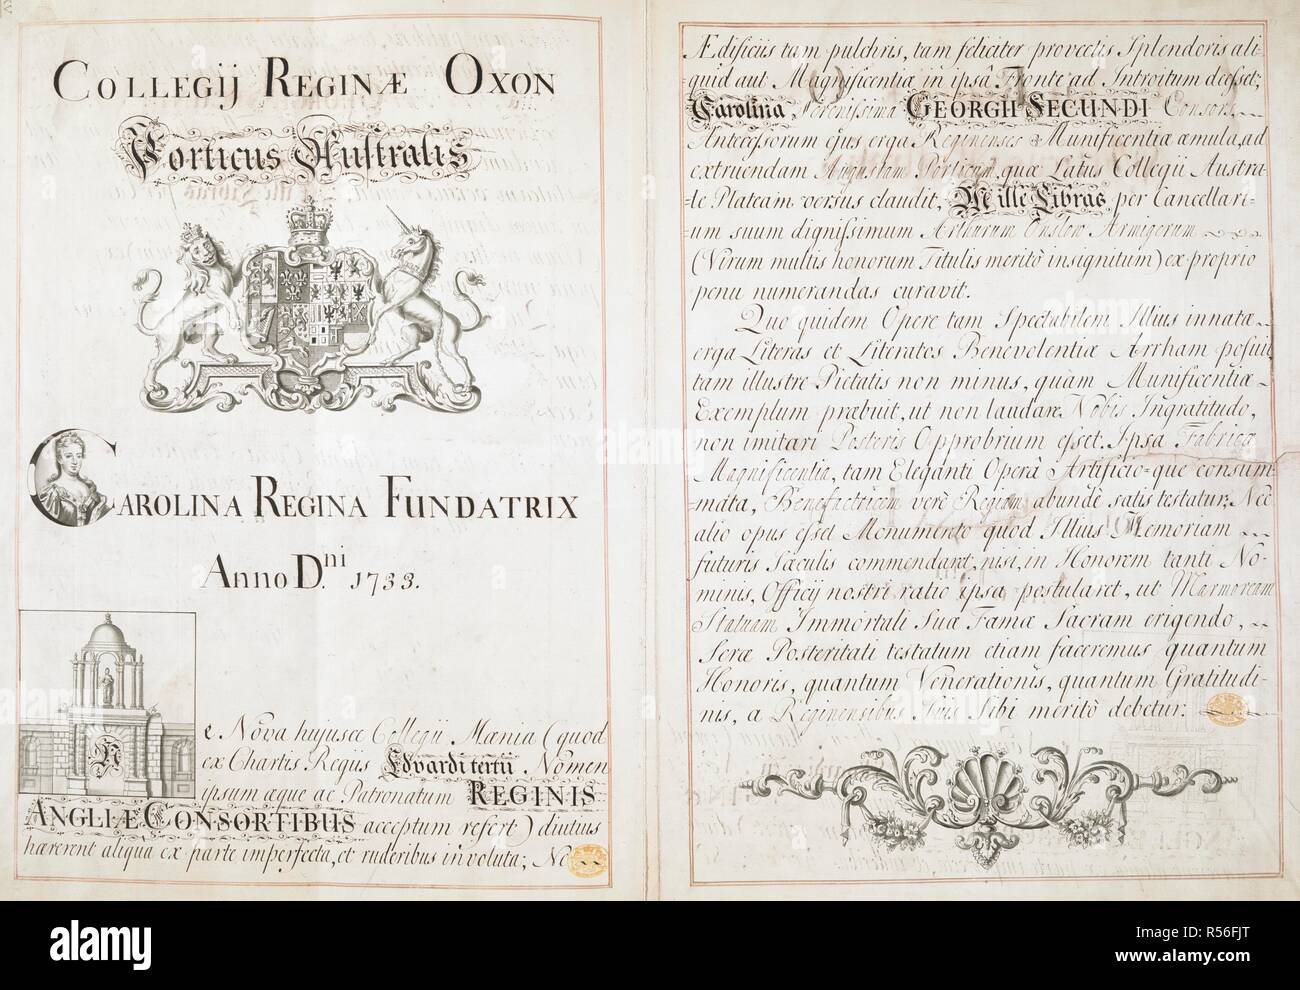 COLLEGIJ REGINÆ OXON
Porticus Australis
CAROLINA REGINA FUNDATRIX
Anno D.ni 1733.
Ne Nova hujusce Collegii Mænia (quod
ex Chartis Regiis Edvardi tertii Nomen
ipsum æque ac Patronatum REGINIS
ANGLIÆ CONSORTIBUS acceptum refert) diutius
hærerent aliqua ex parte imperfecta, et ruderibus involuta; Ne
Ædificiis tam pulchris, tam feliciter provectis Splendoris ali=
=quid aut Magnificentiæ in ipsâ Fronte ad Introitum deesset;
Carolina Serenissima GEORGII SECUNDI Consors
Antecessorum ejus erga Reginenses Munificentiæ æmula, ad
extruendam Augustam Porticum, quæ Latus Collegii Austra=
=le Plateam versus claudit, Mille Libras per Cancellari=
=um suum dignissimum Arthurum Onslow Armigerum
(Virum multis honorum Titulis meritò insignitum) ex proprio
penu numerandas curavit.
Quo quidem Opere tam Spectabilem Illius innatæ
erga Literas et Literatos Benevolentiæ Arrham posuit
tam illustre Pietatis non minus, quàm Munificentiæ
Exemplum præbuit, ut non laudare Nobis Ingratitudo,
non imitari Posteris Opprobrium esset. Ipsa Fabricæ
Magnificentia, tam Eleganti Operâ Artificio-que consum=
=mata, Benefactricem verè Reginam abundè satis testatur; Nec
alio opus esset Monumento quod Illius Memoriam
futuris Sæculis commendaret, nisi, in Honorem tanti No=
=minis, Officij nostri ratio ipsa postularet, ut Marmoream
Statuam Immortali Suæ Famæ Sacram erigendo,
Seræ Posteritati testatum etiam faceremus quantum
Honoris, quantum Venerationis, quantum Gratitudi=
=nis, a Reginensibus Suis Sibi meritò debetur.
alamy
Image ID: R56FJT
www.alamy.com